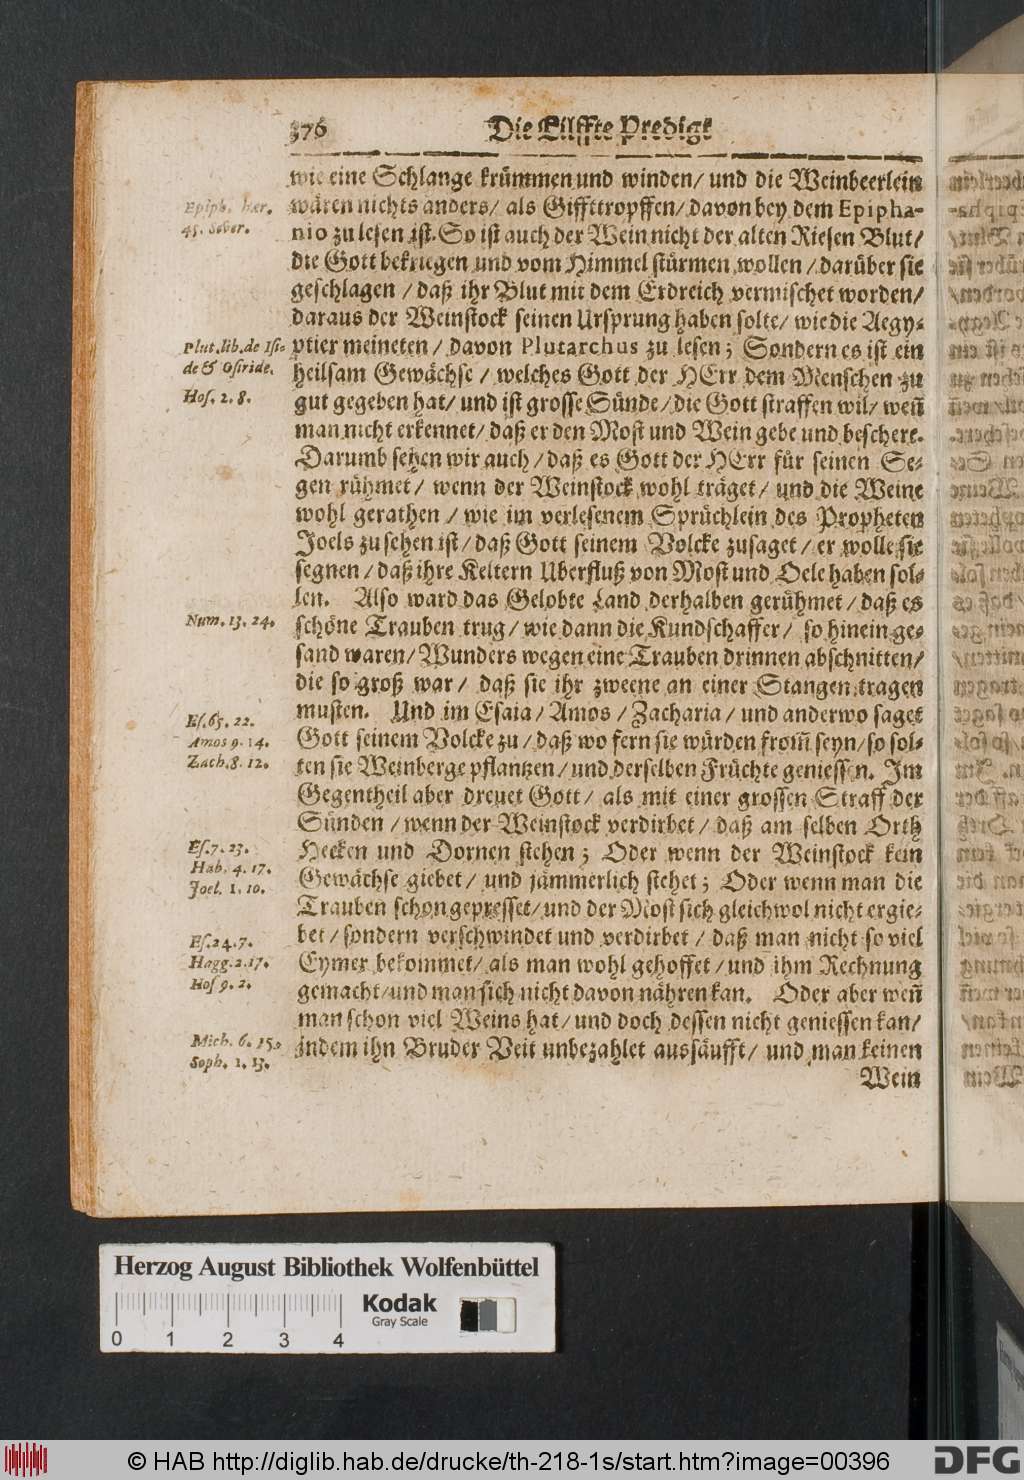 376 Die Eilffte Predigt
wie eine Schlange krümmen und winden/ und die Weinbeerlein
wären nichts anders/ als Giffttropffen/ davon bey dem Epipha-
nio zu lesen ist. So ist auch der Wein nicht der alten Riesen Blut/
die Gott bekriegen und vom Himmel stürmen wollen/ darüber sie
geschlagen/ daß ihr Blut mit dem Erdreich vermischet worden/
daraus der Weinstock seinen Ursprung haben solte/ wie die Aegy-
ptier meineten/ davon Plutarchus zu lesen; Sondern es ist ein
heilsam Gewächse/ welches Gott der HErr dem Menschen zu
gut gegeben hat/ und ist grosse Sünde/ die Gott straffen wil/ weñ
man nicht erkennet/ daß er den Most und Wein gebe und beschere.
Darumb sehen wir auch/ daß es Gott der HErr für seinen Se-
gen rühmet/ wenn der Weinstock wohl träget/ und die Weine
wohl gerathen/ wie im verlesenem Sprüchlein des Propheten
Joels zu sehen ist/ daß Gott seinem Volcke zusaget/ er wolle sie
segnen/ daß ihre Keltern Uberfluß von Most und Oele haben sol-
len. Also ward das Gelobte Land derhalben gerühmet/ daß es
schöne Trauben trug/ wie dann die Kundschaffer/ so hinein ge-
sand waren/ Wunders wegen eine Trauben drinnen abschnitten/
die so groß war/ daß sie ihr zweene an einer Stangen tragen
musten. Und im Esaia/ Amos/ Zacharia/ und anderwo saget
Gott seinem Volcke zu/ daß wo fern sie würden from̃ seyn/ so sol-
ten sie Weinberge pflantzen/ und derselben Früchte geniessen. Im
Gegentheil aber dreuet Gott/ als mit einer grossen Straff der
Sünden/ wenn der Weinstock verdirbet/ daß am selben Orth
Hecken und Dornen stehen; Oder wenn der Weinstock kein
Gewächse giebet/ und jämmerlich stehet; Oder wenn man die
Trauben schon gepresset/ und der Most sich gleichwol nicht ergie-
bet/ sondern verschwindet und verdirbet/ daß man nicht so viel
Eymer bekommet/ als man wohl gehoffet/ und ihm Rechnung
gemacht/ und man sich nicht davon nähren kan. Oder aber weñ
man schon viel Weins hat/ und doch dessen nicht geniessen kan/
indem ihn Bruder Veit unbezahlet aussäufft/ und man keinen
Wein
Epiph. hær.
45. Sever.
Plut. lib. de Isi-
de & Osiride.
Hos. 2. 8.
Num. 13. 24.
Es. 65. 22.
Amos 9. 14.
Zach. 8. 12.
Es. 7. 23.
Hab. 4. 17.
Joel. 1. 10.
Es. 24. 7.
Hagg. 2. 17.
Hos 9. 2.
Mich. 6. 15.
Soph. 1. 13.
Herzog August Bibliothek Wolfenbüttel
Kodak
Gray Scale
0 1 2 3 4
© HAB http://diglib.hab.de/drucke/th-218-1s/start.htm?image=00396
DFG